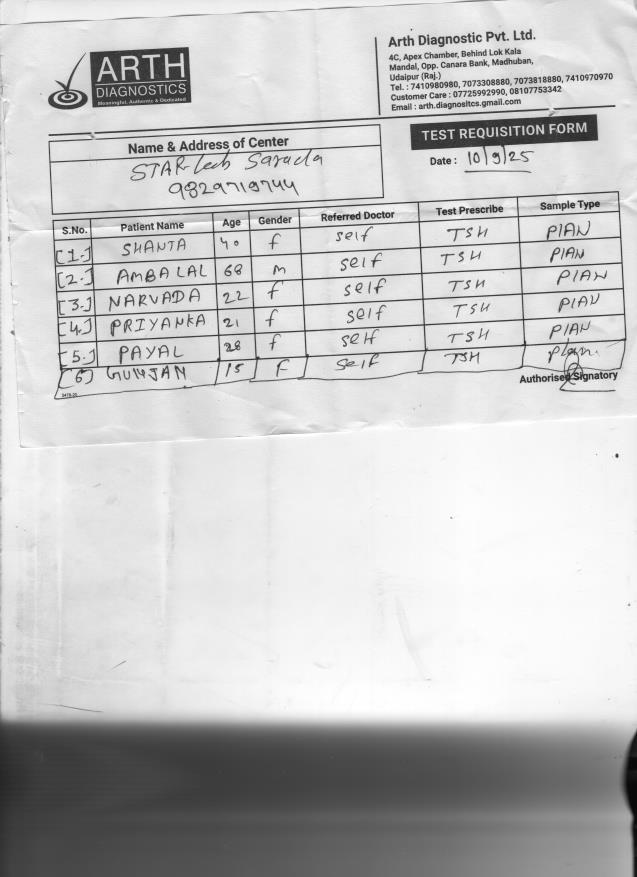 ARTH
DIAGNOSTICS
Meaningful, Authentic & Dedicated
Arth Diagnostic Pvt. Ltd.
4C, Apex Chamber, Behind Lok Kala
Mandal, Opp. Canara Bank, Madhuban,
Udaipur (Raj.)
Tel. : 7410980980, 7073308880, 7073818880, 7410970970
Customer Care : 07725992990, 08107753342
Email : arth.diagnositcs.gmail.com
Name & Address of Center
STAR-Leeb Sarada
9829719744
TEST REQUISITION FORM
Date : 10/9/25
S.No. Patient Name Age Gender Referred Doctor Test Prescribe Sample Type
[1.] SHANTA 40 f self TSH PlAN
[2.] AMBALAL 68 m self TSH PlAN
[3.] NARVADA 22 f self TSH PlAN
[4.] PRIYANKA 21 f self TSH PlAN
[5.] PAYAL 28 f self TSH PlAN
[6] GUNJAN 15 F self TSH Plan
Authorised Signatory